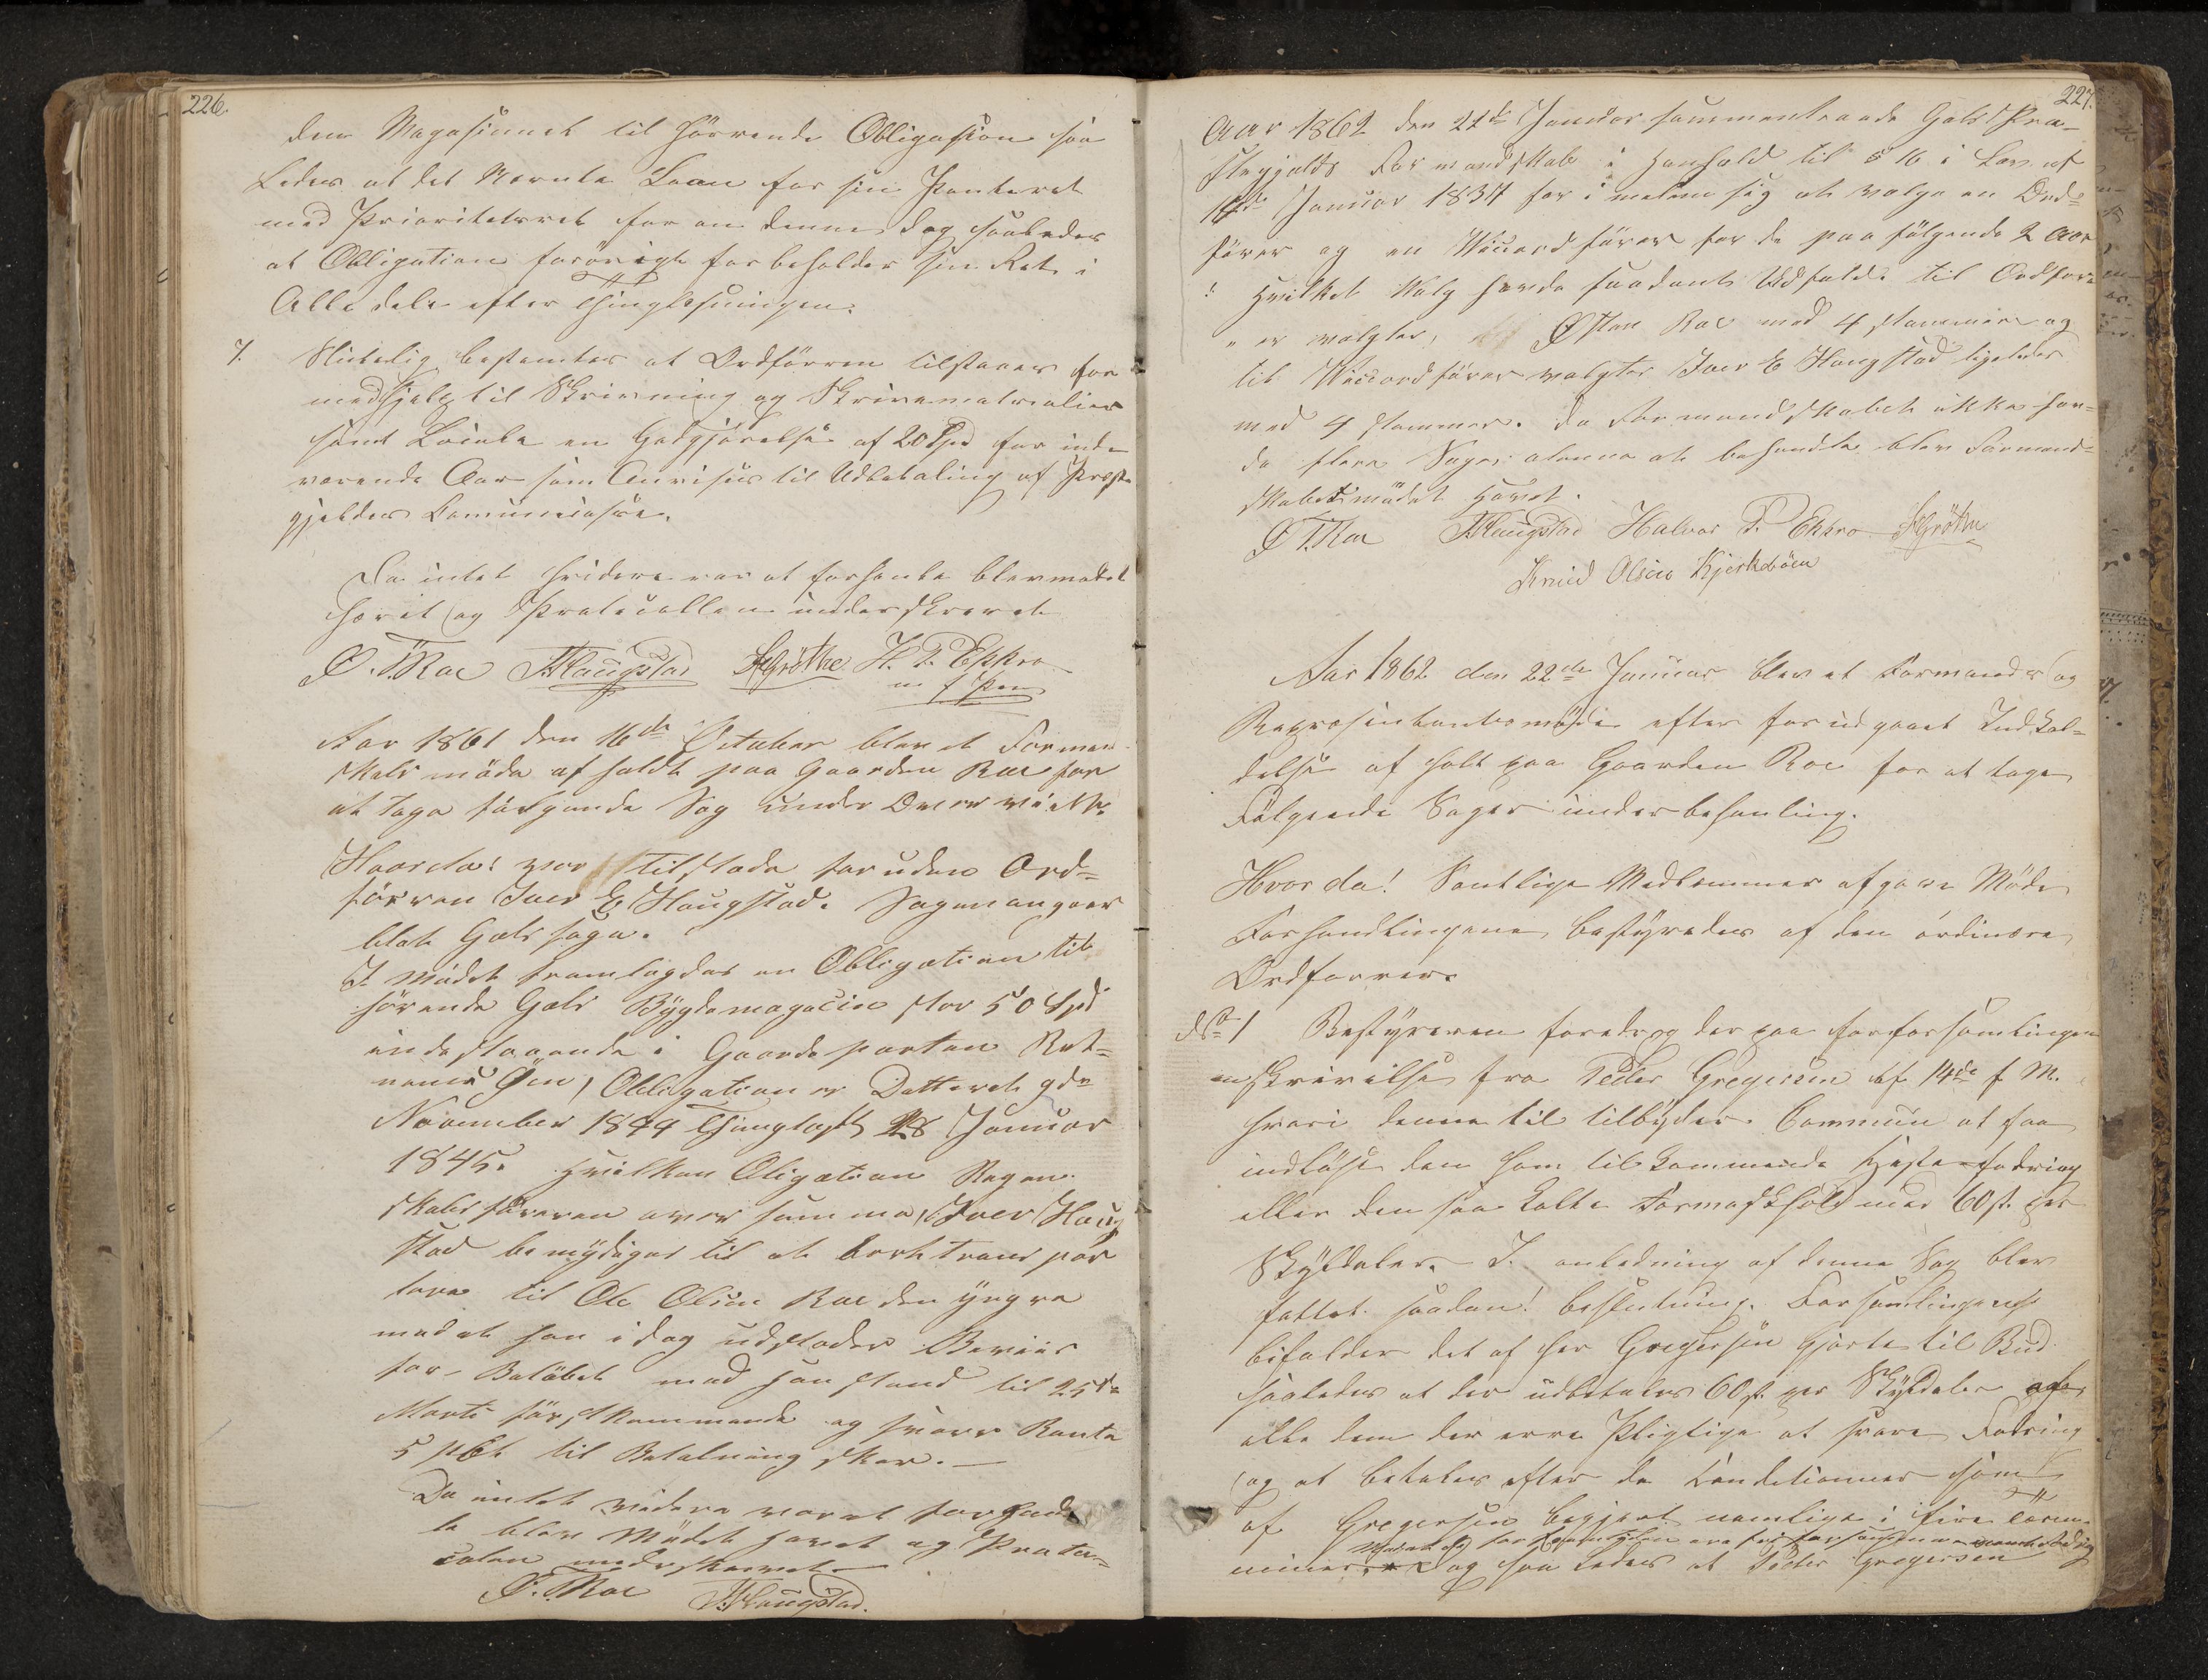 226.
den Magasinet til hörrende Obligasion saa
Ledes at det Nevnte Laan for sin Panteret
med Prioritetsret for om denne dag saaledes
at Obligation forövrigt forbeholder sin Ret i
Alle dele efter Thinglesningen.
7. Sluttelig bestemtes at Ordförren tilstaaes for
medhjelp til Skrivning og Skrivematrialier
samt Locale en Godgjörelse af 20 Spd for inde
verende Aar som Anvises til Udbetaling af Præste
gjeldets Comunecasse.
Da intet videre var at forhante blev mödet
hævet og Protocollen underskrevet
Ö. T. Roe I. Haugstad Gröthe H. T. Ekkro
m f Pen
Aar 1861 den 16de October blev et Forman
skabs möde af holdt paa Gaarden Roe for
at tage fölgende Sag under
Hvorda! var tilstede foruden Ord=
förren Iver E Haugstad. Sagen angaar
blot Gols sogn.
I Mödet framlagdes en Obligation til
hörende Gols Bygdemagacin stor 50 Spd
indestaaende i Gaardeparten
Öen, Obligation er Datteret 9de
November 1844 Thinglyst 28 Januar
1845. Hvilken Oligation Regen
skabsföreren over samme, Iver Haug
stad bemyndiges til at borttranspor
tere til Ole Olsen Roe den yngre
mod at han i dag udsteder Beviis
for Belöbet med han stand til 25de
Marts förstkommende og svare Rente
5 pCt til Betalning sker. —
Da intet videre var at forhand
le blev Mödet hævet og Proto=
colen underskrevet
Ö. T. Roe I. Haugstad.
227.
Aar 1862 den 22de Januar sammentraade Gols Præ=
stegjelds Formandskab i Henhold til § 16 i Lov af
14de Januar 1837 for i mellem sig at velge en Ord=
förer og en Viceordförer for de paa fölgende 2 Aar
! Hvilket Valg havde saadant Udfald: til Ordför
" er valgtes, Östen Roe med 4 stemmer og
til Viceordförer valgtes Iver E Haugstad ligeledes
med 4 stemmer. Da Formandskabet ikke hav=
de flere Sager at behandle blev Formand=
skabetsmödet Hævet.
Ö T. Roe I. Haugstad Halvor T. Ekkro Gröthe
Knud Olsen Kjerkeböen
Aar 1862 den 22de Januar blev et Formands og
Represintantsmöde efter forudgaaet Indkal=
delse af holt paa Gaarden Roe for at tage
Fölgende Sager under behanling.
Hvor da! Samtlige Medlemmer afgave Möde
Forhandlingene bestyredes af den ordinære
Ordforrer.
1 Bestyreren foredrog derpaa for forsamlingen
en skrivelse fra Peder Gregersen af 14de f. M.
hvori denne til tilbyder Commun at faa
indlöse den ham tilkommende Hestefodring
eller den saa kalte med 60 s. per
Skylddaler. I anledning af denne Sag blev
fattet saadan! beslutning. Forsamlingene
bifalder det af her Gregersen gjorte til Bud
saaledes at der udbetales 60 s. per Skyldaler af
alle dem der erre Pligtige at svare Fodring
og at betales efter de Conditionner som
af Gregersen begjert nemlige i fire
og saa ledes at Peder Gregersen